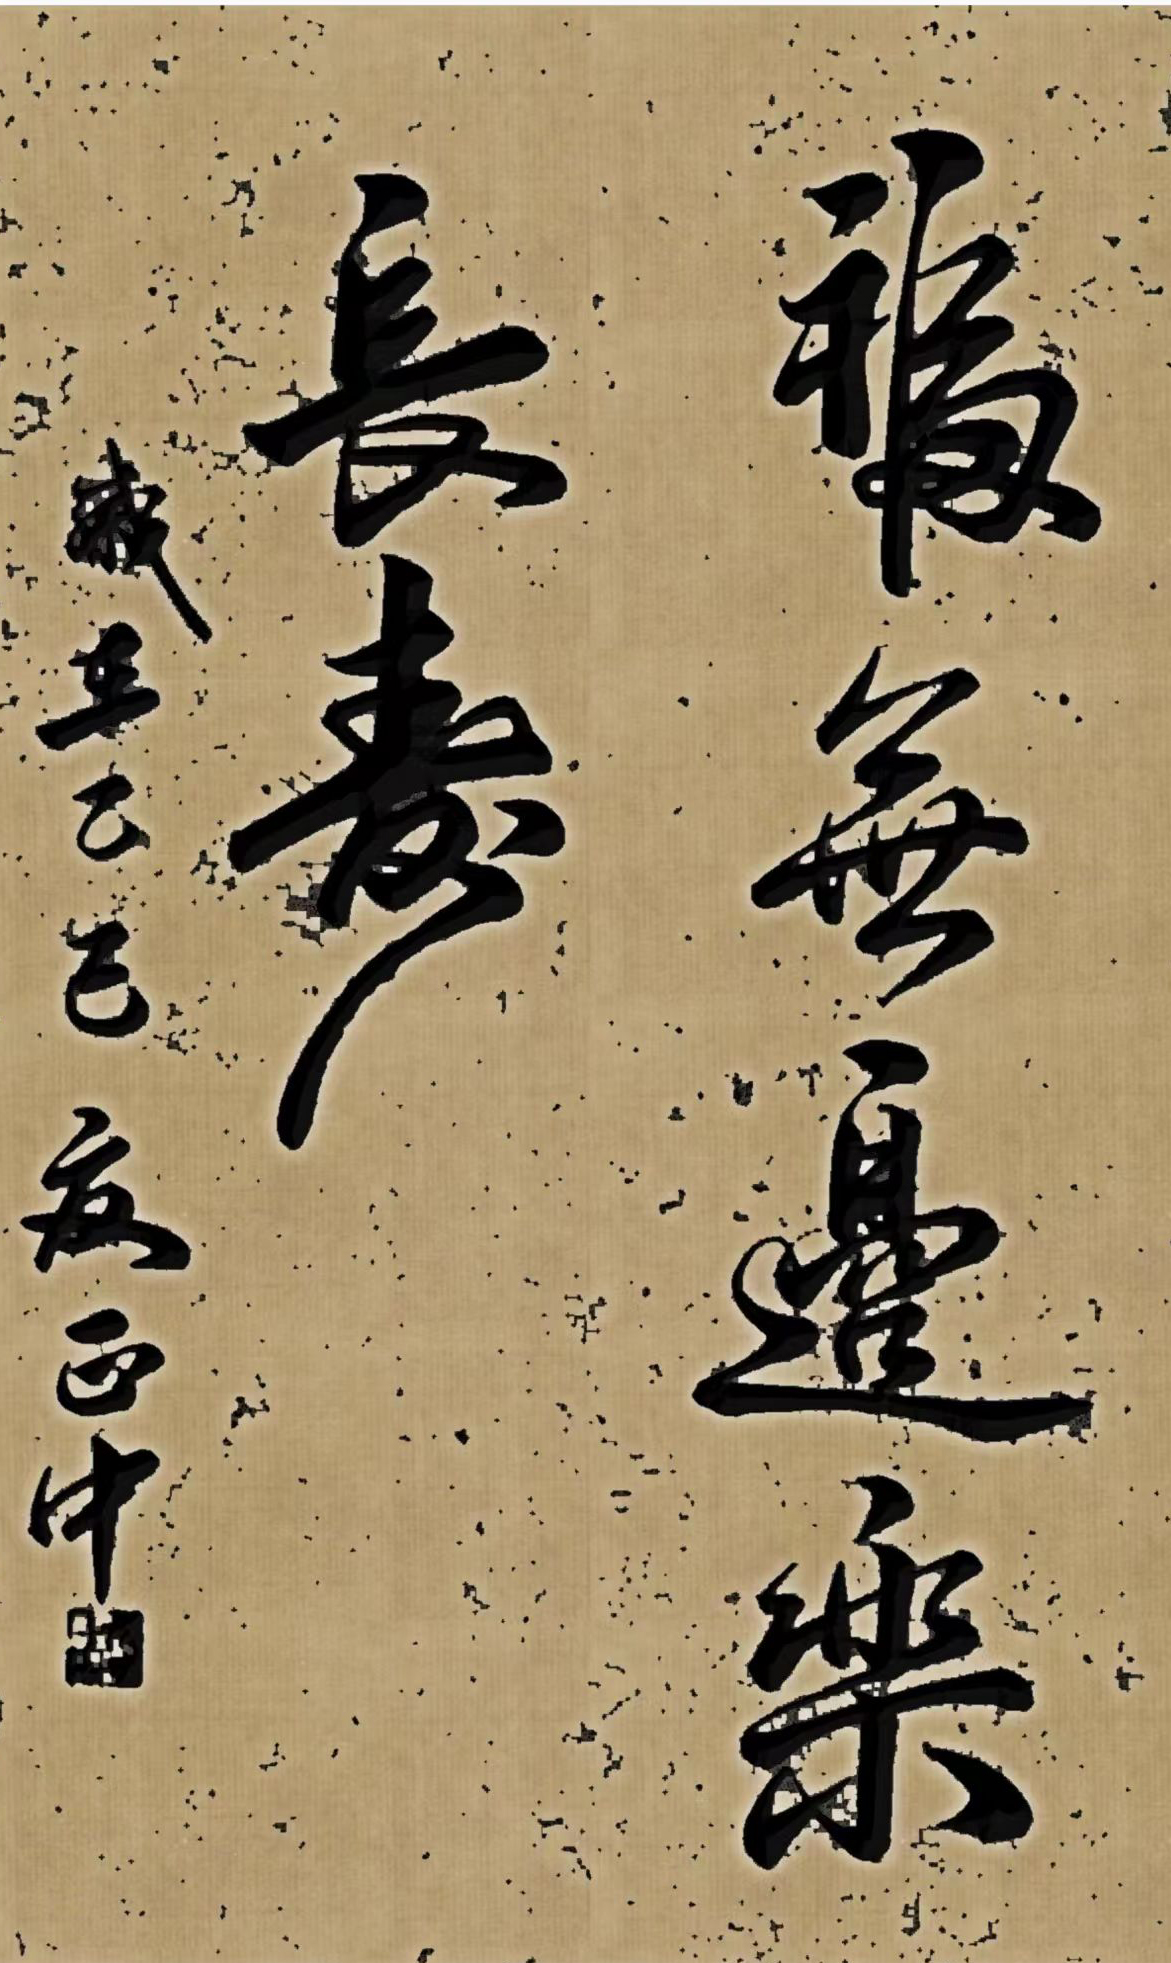 無邊樂
長壽
歲在乙巳 正中